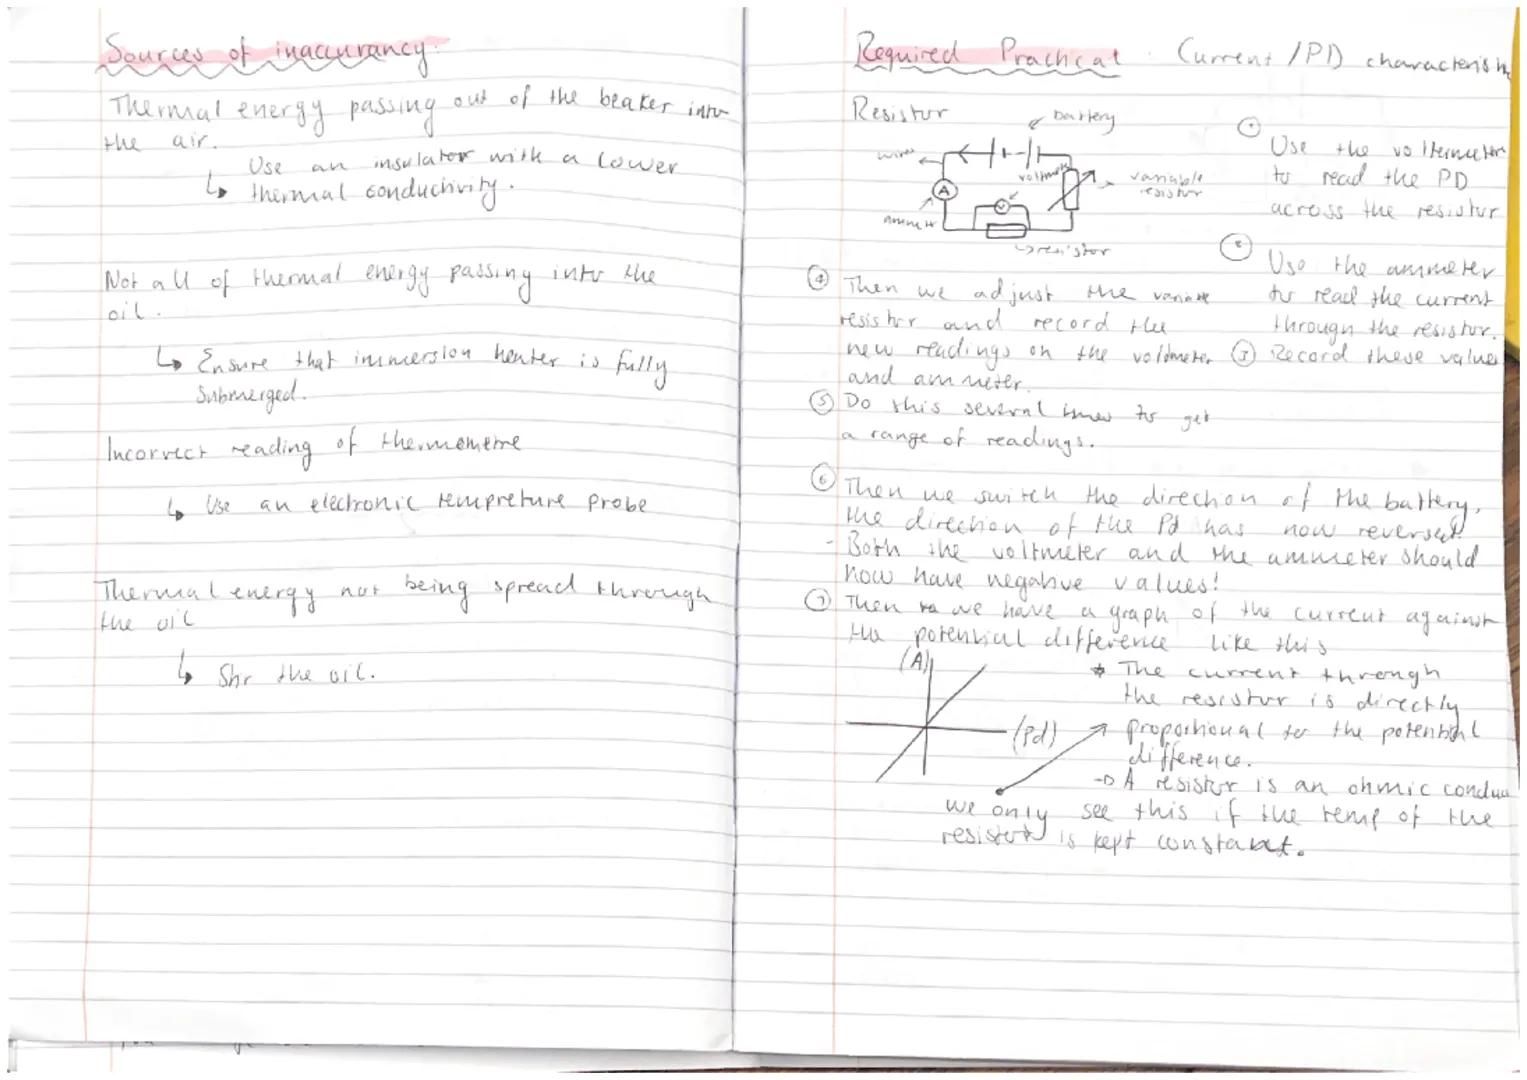 Sources of inaccurancy:
Thermal energy passing out of the beaker into
the air.
↳ Use an insulator with a lower
thermal conductivity.
Not all of thermal energy passing into the
oil.
↳ Ensure that immersion heater is fully
submerged.
Incorrect reading of thermometre
↳ Use an electronic tempreture probe
Thermal energy not being spread through
the oil
↳ Stir the oil.
Required Practical : Current / PD
Resistor
battery
wires
A
voltmeter
V
variable
resistor
ammeter
resistor
① Use the voltemeter
to read the PD
across the resistor
② Use the ammeter
to read the current
through the resistor.
③ Record these values
④ Then we adjust the variable
resistor and record the
new readings on the voltmeter
and ammeter.
⑤ Do this several times to get
a range of readings.
⑥ Then we switch the direction of the battery,
the direction of the Pd has now reversed.
- Both the voltmeter and the ammeter should
now have negative values!
⑦ Then we have a graph of the current against
the potential difference like this
(A)
(Pd)
* The current through
the resistor is directly
proportional to the potential
difference.
→ A resistor is an ohmic
we only see this if the temp of the
resistor is kept constant.